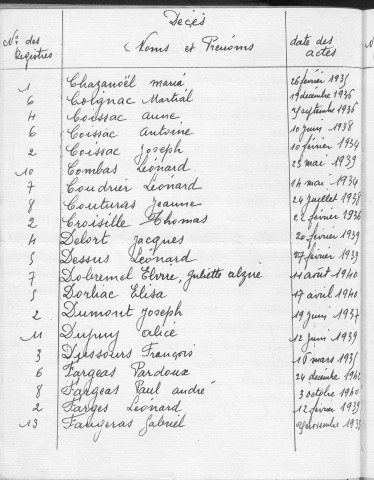 Décès
N° des Registres Noms et Prénoms date des actes
1 Chazanoël maria 26 février 1935
6 Coignac Martial 19 décembre 1936
4 Coissac anne septembre 1936
6 Coissac Antoine 10 juin 1938
2 Coissac Joseph 10 février 1934
10 Combas Léonard 23 mai 1939
7 Coudrier Léonard 14 mai 1934
8 Couturas Jeanne 24 juillet 1938
2 Croisille Thomas 22 février 1936
4 Delort Jacques 20 février 1939
5 Dessus Léonard 27 février 1939
7 Dobremel Juliette 11 août 1940
5 Dorliac Elisa 17 avril 1940
2 Dumont Joseph 19 juin 1937
11 Dupuy alice 12 juin 1939
3 Dussours François 10 mars 1935
6 Fargeas Pardoux 24 décembre 1940
8 Fargeas Paul andré 3 octobre 1940
2 Farges Léonard 12 février 1939
13 Faugeras Gabriel novembre